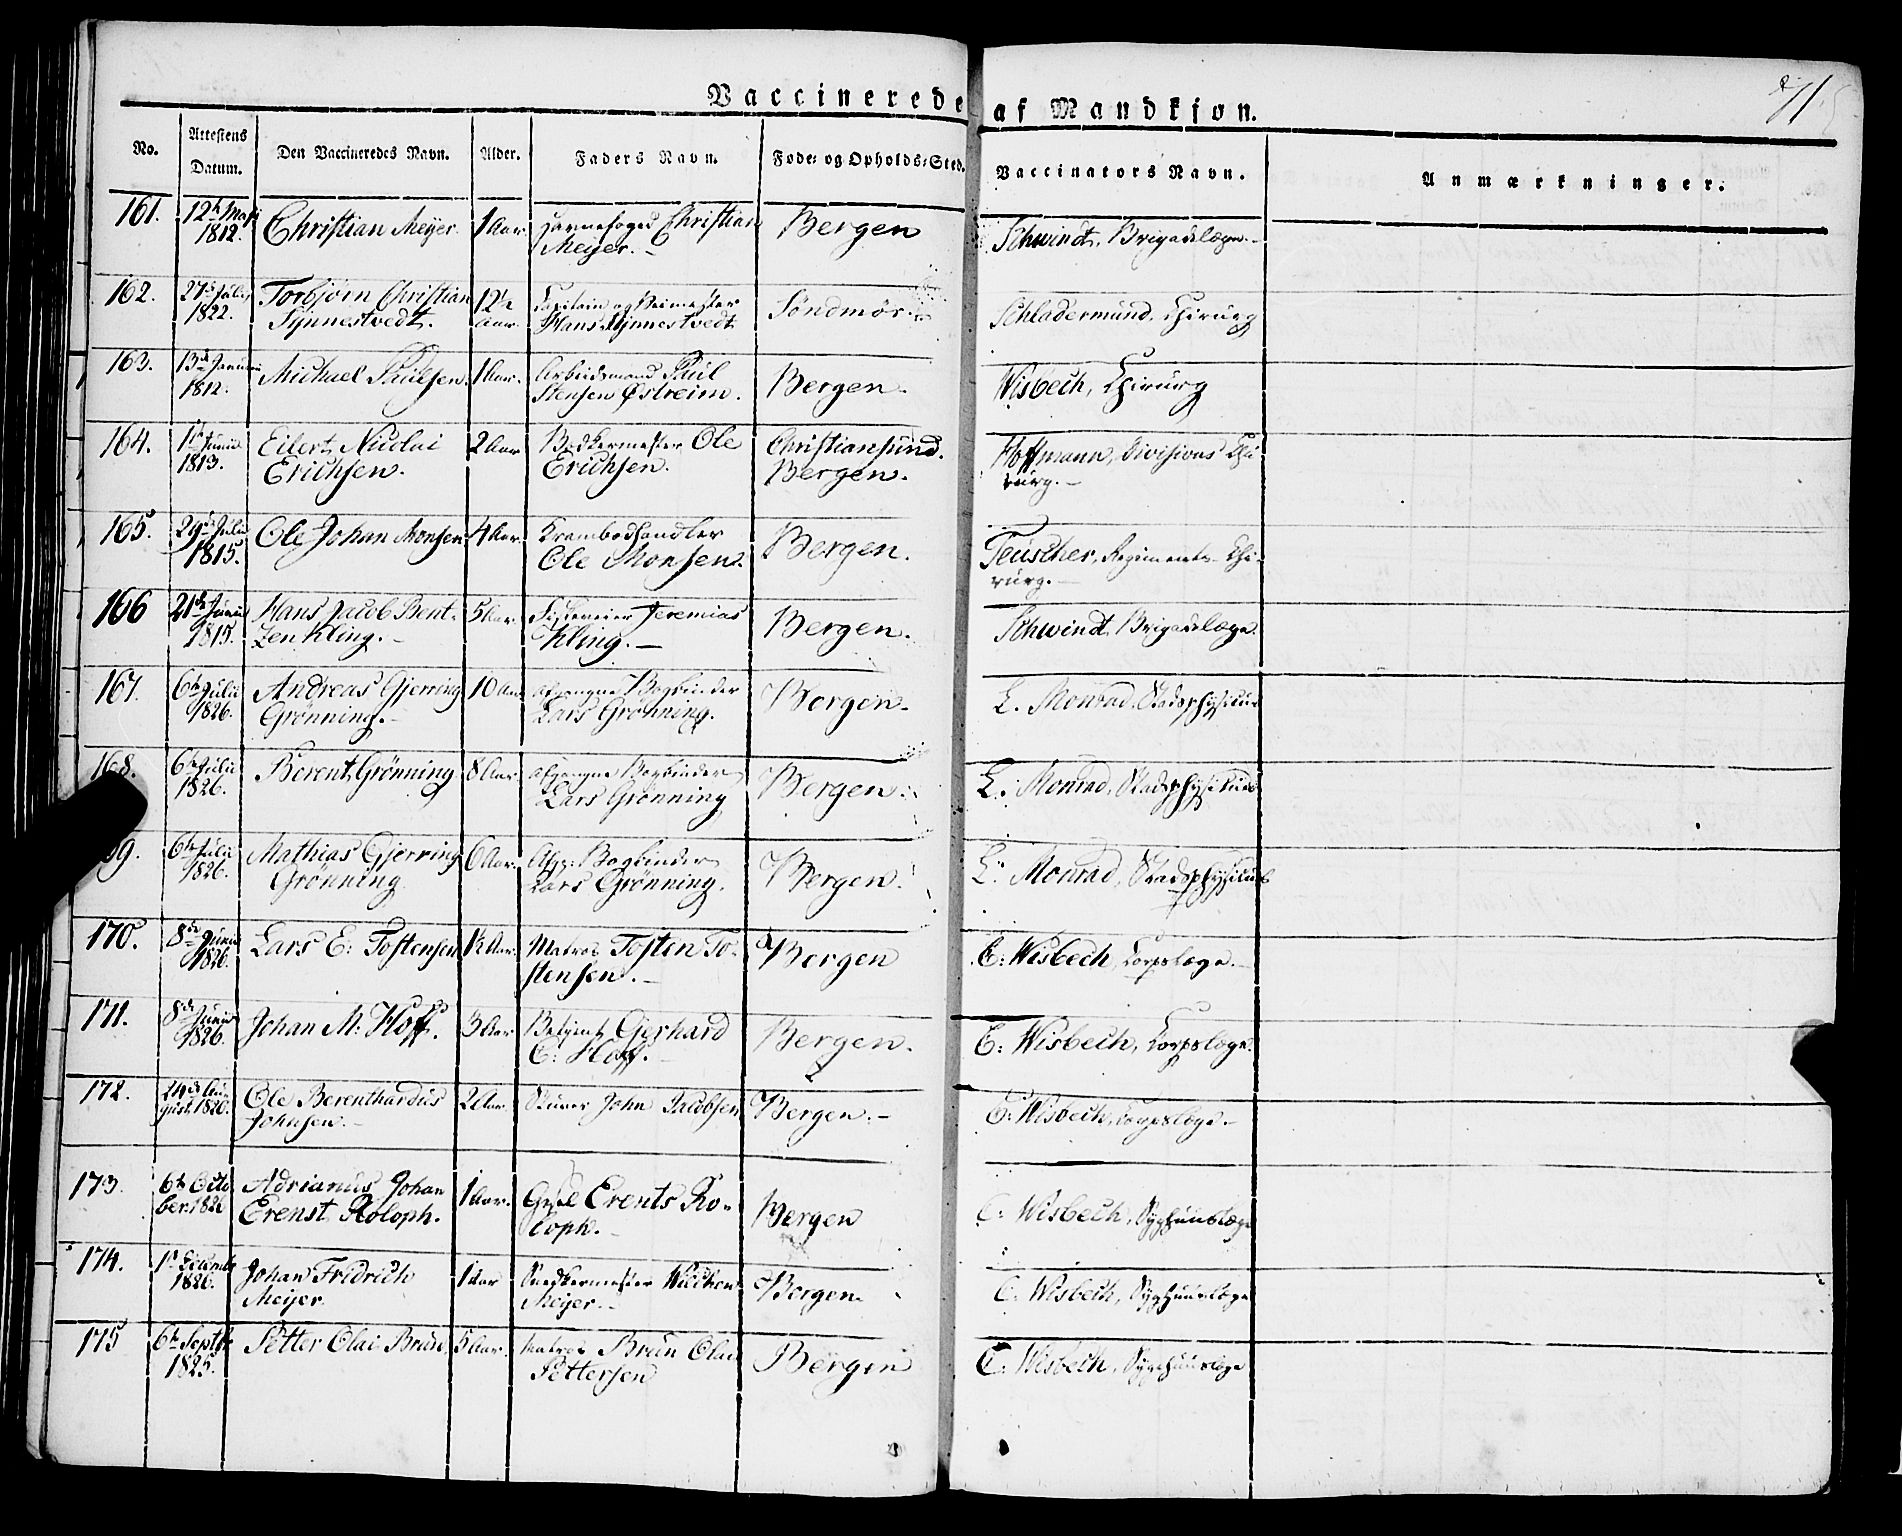 Vaccinerede af Mandkjøn.
71
No. Attestens Datum. Den Vaccineredes Navn. Alder. Faders Navn. Føde- og Opholds-Sted. Vaccinators Navn. Anmærkninger.
161. 12te Maji Christian Meyer. 1 Aar. Christian Bergen Schwindt, Brigadelæge.
1812. Meyer.
162. 27de July Torbjørn Christian 12½ Capitain og Veimester Søndmør. Schladermund, Chirurg
1822. Synnestvedt. Aar. Hans Synnestvedt
163. 13de Januari Michael Paulsen. 1 Aar. Arbeidsmand Paul Bergen. Wisbech, Chirurg
1812. Stensen Østreim.
164. Junii Eilert Nicolai 2 Aar Bødkermester Ole Christiansund. Hoffmann, Divisions Chi
1813. Erichsen. Erichsen. Bergen. rurg.
165. 29de Julii Ole Johan Monsen 4 Aar. Krambodhandler Bergen. Teuscher, Regiments-Chi-
1815. Ole Monsen. rurg.
166 21de Junii Hans Jacob Bent- 5 Aar. Jeremias Bergen. Schwindt, Brigadelæge.
1815. zen Kling. Kling.
167. 6te Julii Andreas Gjerring 10 Aar afgangne Bogbinder Bergen. L. Monrad, Stadsphysicus
1826. Grønning. Lars Grønning.
168. 6te Julii Berent Grønning 8 Aar. afgangne Bogbinder Bergen. L. Monrad, Stadsphysicus
1826. Lars Grønning
69. 6te Julii Mathias Gjerring 6 Aar. Afg: Bogbinder Bergen. L. Monrad, Stadsphysicus
1826. Grønning Lars Grønning.
170. 8de Junii Lars E: Tostensen 1½ Aar. Matros Tosten To- Bergen C: Wisbech, Corpslæge.
1826. stensen.
171. 8de Junii Johan M: Hoff. 3 Aar. Betjent Gerhard Bergen. C: Wisbech, Corpslæge.
1826. C: Hoff.
172. 24de Au- Ole Berenthardus 2 Aar. John Jacobsen Bergen. C: Wisbech, Corpslæge.
gust. 1826. Johnsen.
173. 6te Octo Adrianus Johan 1 Aar. Erents Ro- Bergen C: Wisbech, Sygehuuslæge
ber. 1826 Erenst Roloph. loph.
174. 1ste Decembr Johan Fridrich 1 Aar Snedkermester Wilchen Bergen. C. Wisbech, Sygehuuslæge
1826. Meijer. Meijer.
175 6te Septbr Petter Olai Bruun 5 Aar. Matros Bruun Olai Bergen C. Wisbech, Sygehuuslæge
1825. Pettersen